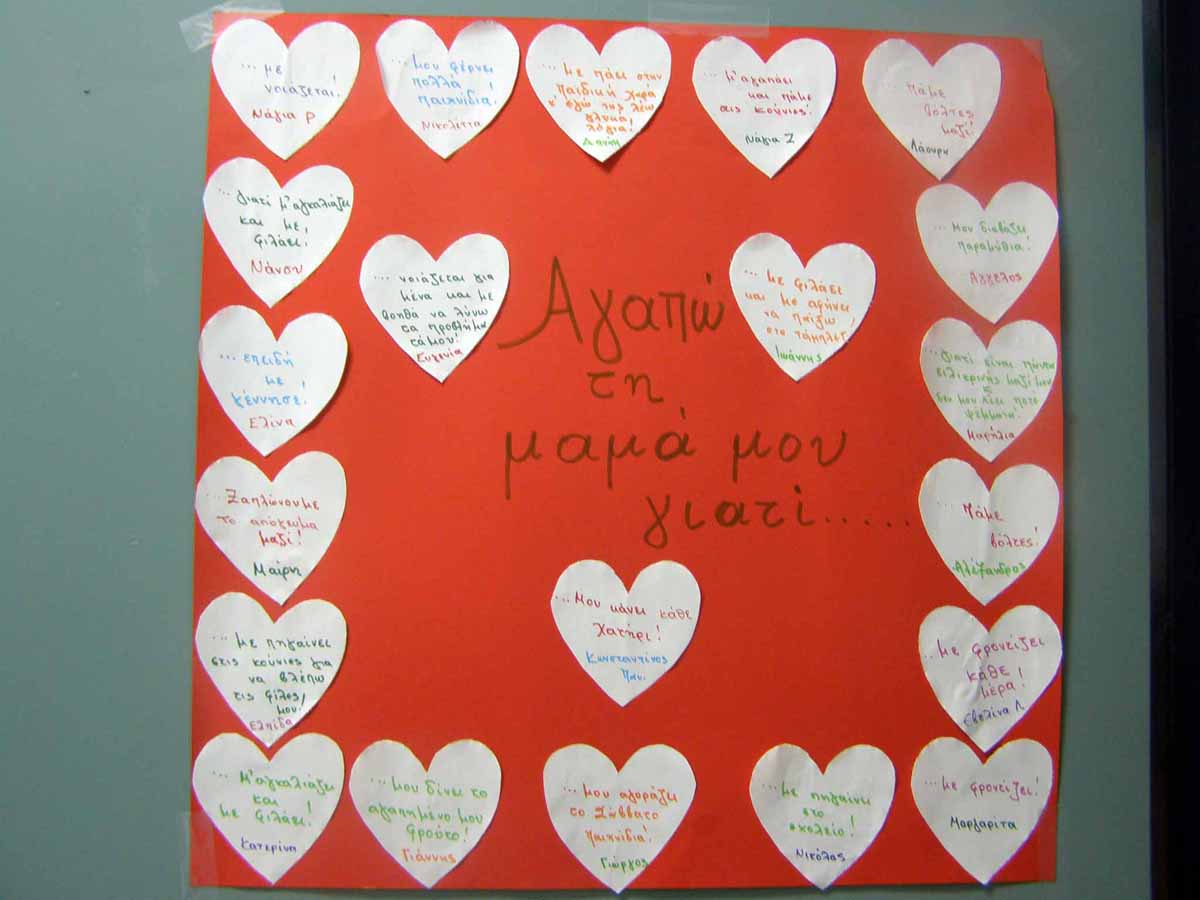 ... με
νοιάζεται!
Νάγια Ρ
... μου φέρνει
πολλά
παιχνίδια!
Νικολέττα
... με πάει στην
παιδική χαρά
κ' εγώ της λέω
γλυκά
λόγια!
Δανάη
... μ'αγαπάει
και πάμε
στις κούνιες!
Νάγια Ζ
... πάμε
βόλτες
μαζί!
Λάουρη
... γιατί μ'αγκαλιάζει
και με
φιλάει!
Νάνσυ
... μου διαβάζει
παραμύθια!
Άγγελος
... νοιάζεται για
μένα και με
βοηθά να λύνω
τα προβλήμα
τά μου!
Ευγενία
Αγαπώ
τη
μαμά μου
γιατί.....
... με φιλάει
και με αφήνει
να παίζω
στο τάμπλετ!
Ιωάννης
... επειδή
με
γέννησε!
Ελίνα
... γιατί είναι πάντα
ειλικρινής μαζί μου
κ
δεν μου λέει ποτέ
ψέμματα!
Μαρήλια
... Ξαπλώνουμε
το απόγευμα
μαζί!
Μαίρη
... Πάμε
βόλτες!
Αλέξανδρος
... Μου κάνει κάθε
χατήρι!
Κωνσταντίνος
Παυ.
... με πηγαίνει
στις κούνιες για
να βλέπω
τις φίλες
μου!
Ελπίδα
... με φροντίζει
κάθε
μέρα!
Εβελίνα Λ
... Μ'αγκαλιάζει
και
με φιλάει!
Κατερίνα
... μου δίνει το
αγαπημένο μου
φρούτο!
Γιάννης
... μου αγοράζει
το Σάββατο
παιχνίδια!
Γιώργος
... με πηγαίνει
στο
σχολείο!
Νικόλας
... με φροντίζει!
Μαργαρίτα